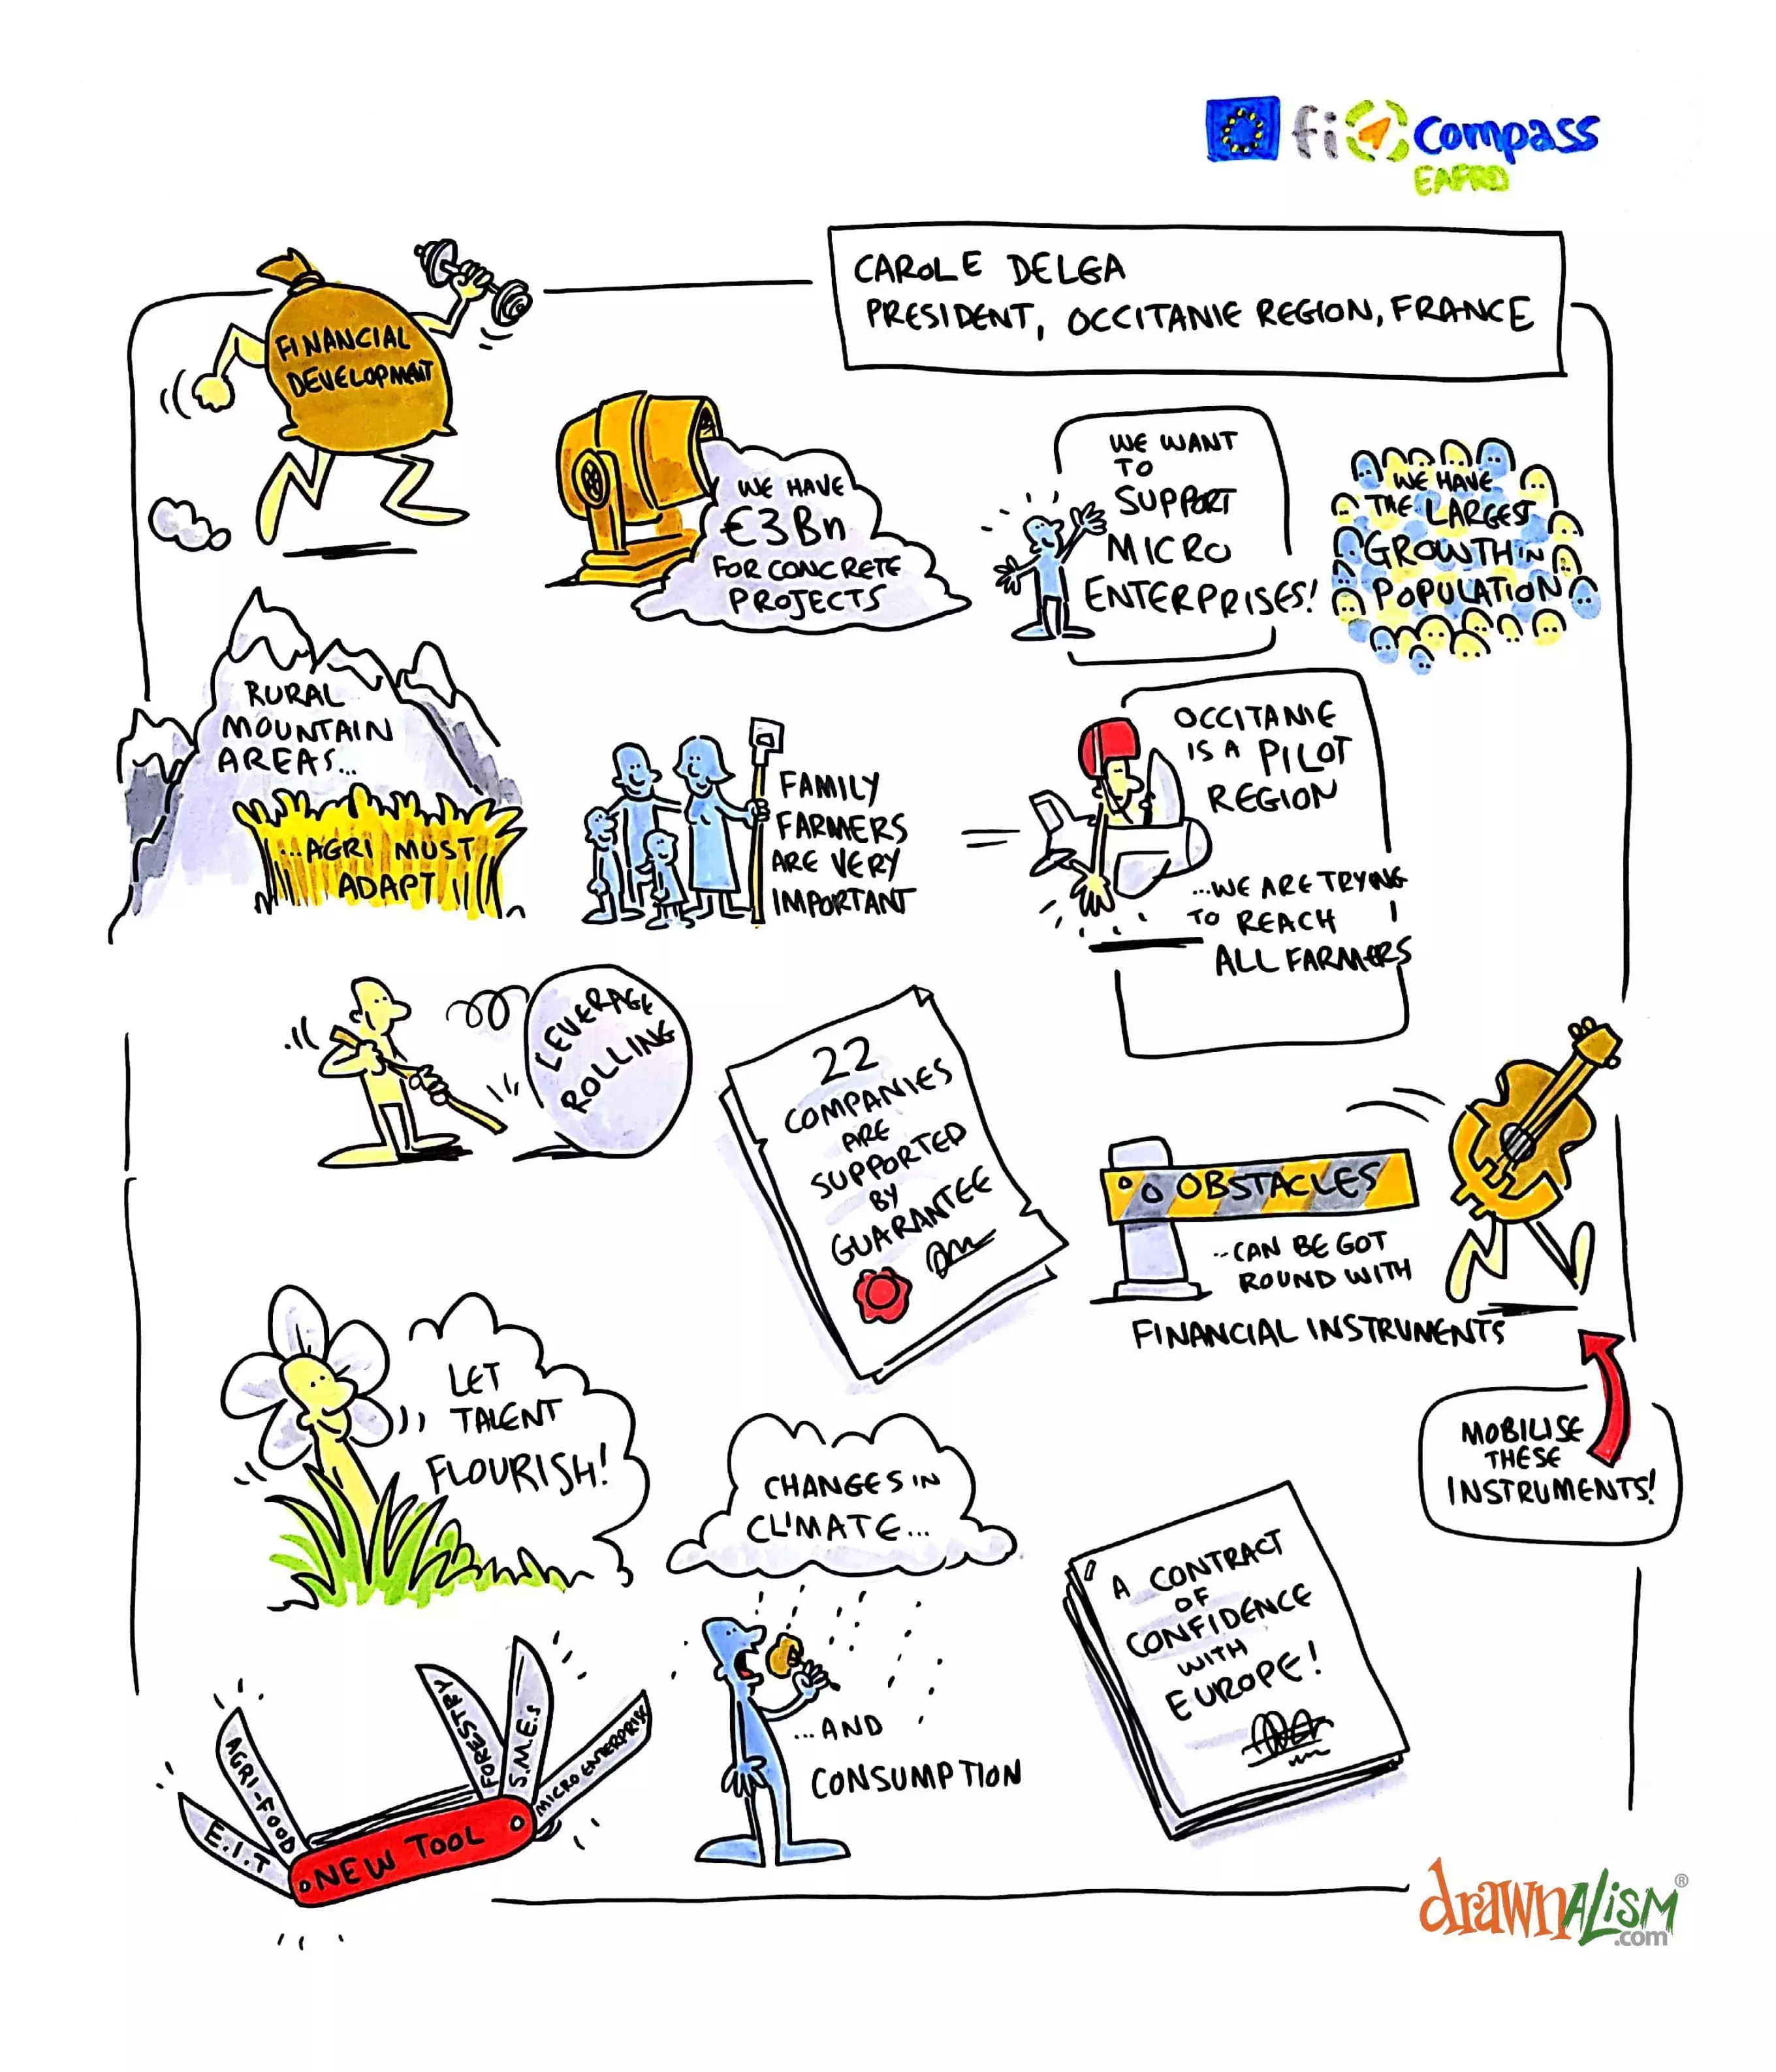 fi compass
EAFRD
CAROLE DELGA
PRESIDENT, OCCITANIE REGION, FRANCE
FINANCIAL
DEVELOPMENT
WE HAVE
€3Bn
FOR CONCRETE
PROJECTS
WE WANT
TO
SUPPORT
MICRO
ENTERPRISES!
WE HAVE
THE LARGEST
GROWTH IN
POPULATION
RURAL
MOUNTAIN
AREAS...
...AGRI MUST
ADAPT
FAMILY
FARMERS
ARE VERY
IMPORTANT
=
OCCITANIE
IS A PILOT
REGION
...WE ARE TRYING
TO REACH
ALL FARMERS
LEVERAGE
ROLLING
22
COMPANIES
ARE
SUPPORTED
BY
GUARANTEE
OBSTACLES
...CAN BE GOT
ROUND WITH
FINANCIAL INSTRUMENTS
MOBILISE
THESE
INSTRUMENTS!
LET
TALENT
FLOURISH!
CHANGES IN
CLIMATE...
...AND
CONSUMPTION
A CONTRACT
OF
CONFIDENCE
WITH
EUROPE!
E.I.T
AGRI-FOOD
FORESTRY
S.M.E.s
MICRO ENTERPRISE
NEW TOOL
drawnalism®
.com